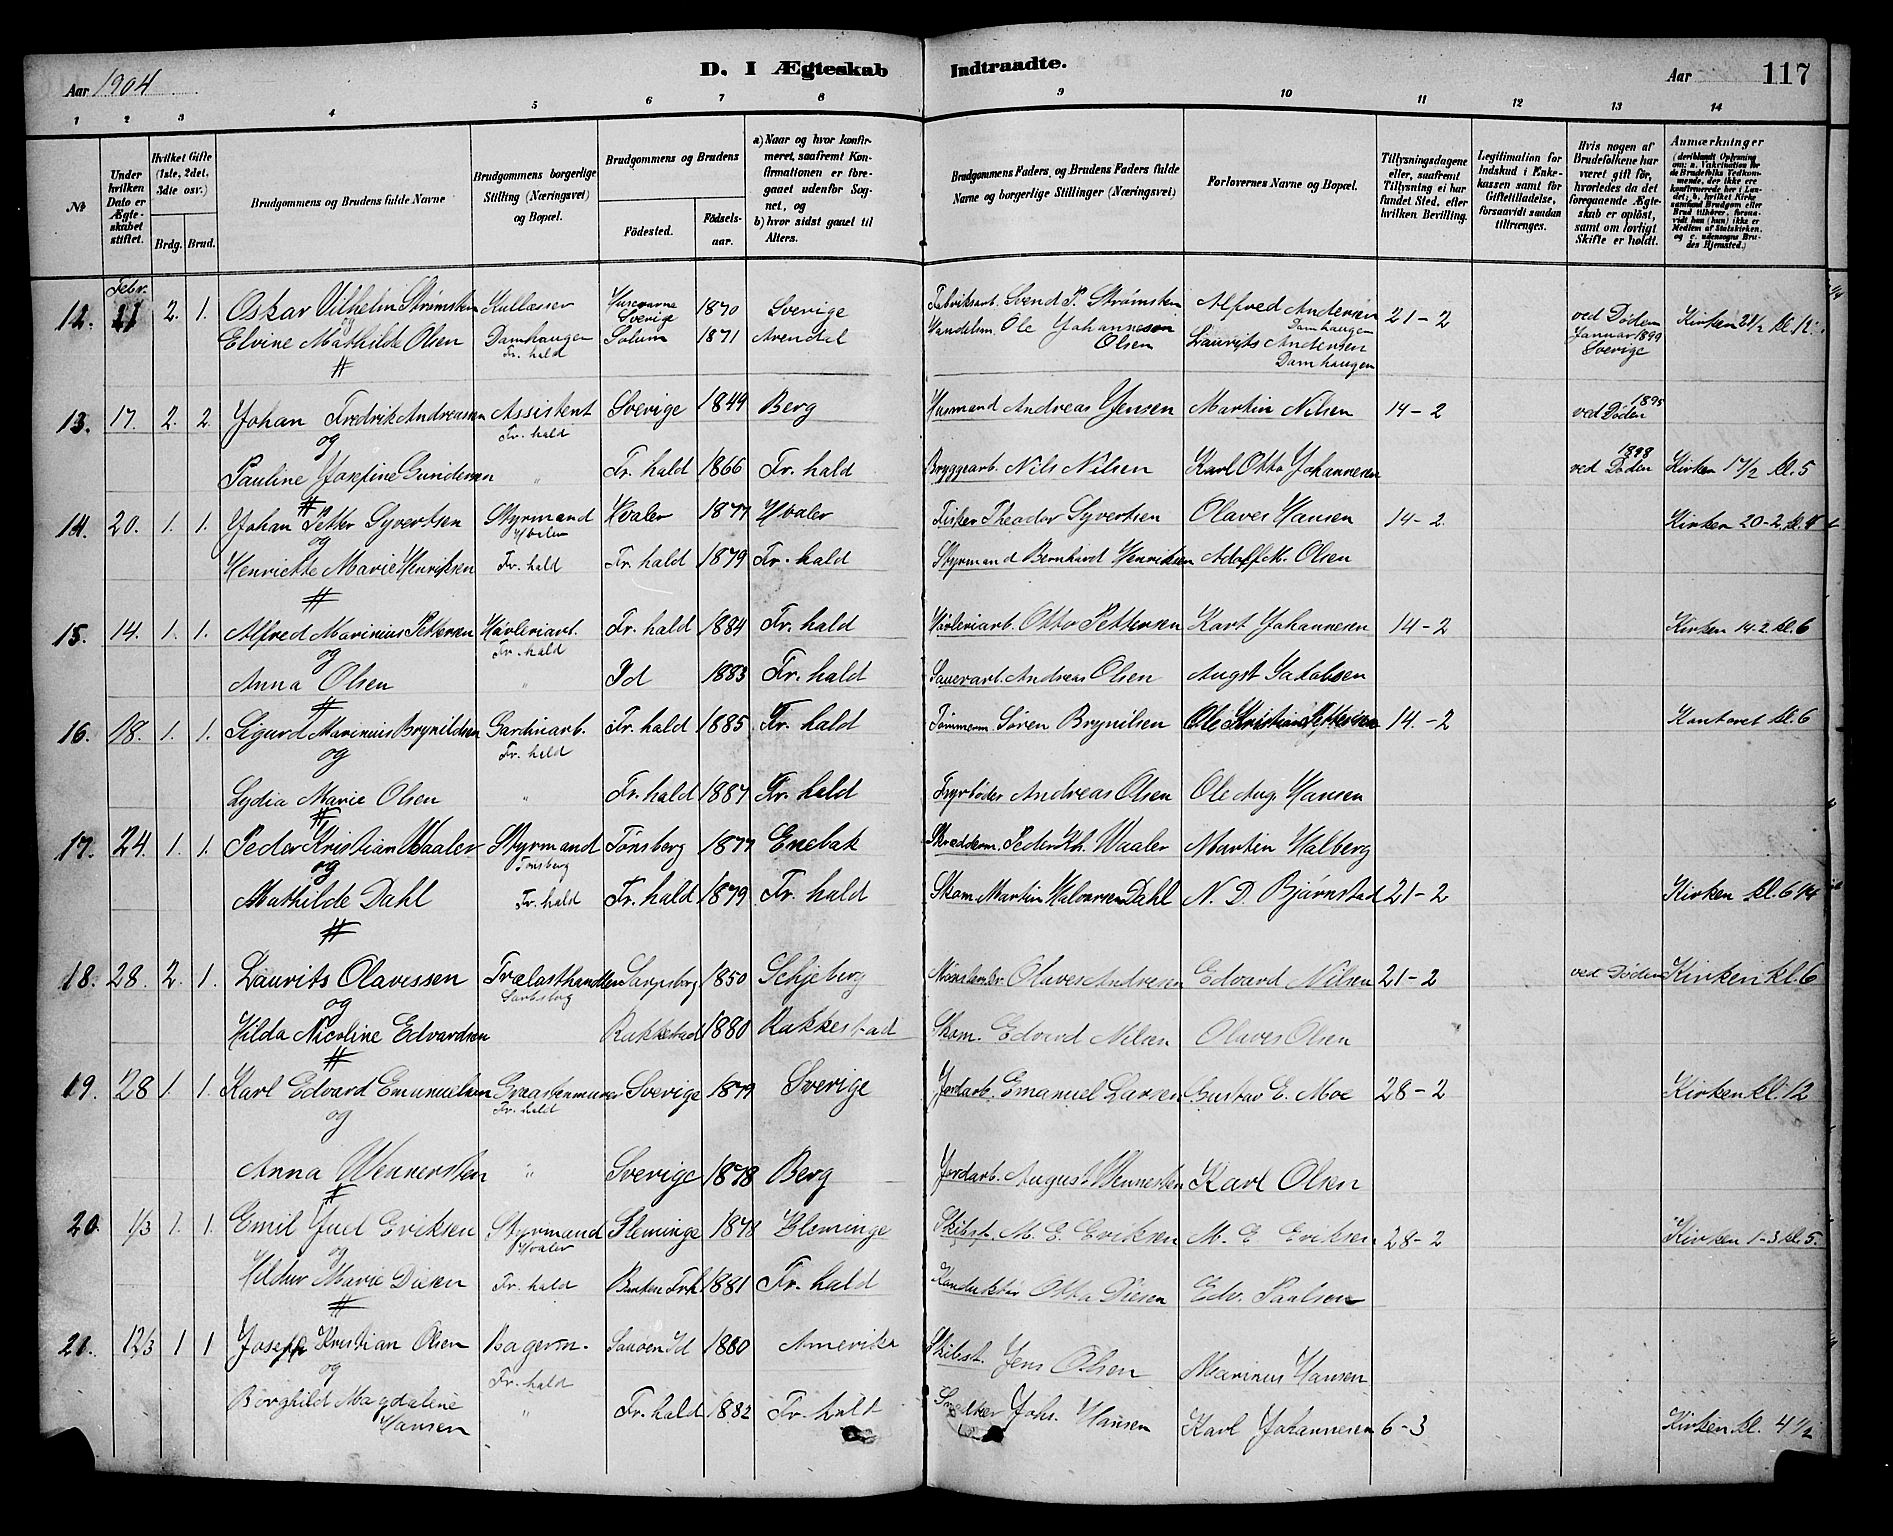 Aar 1904
D. I Ægteskab Indtraadte.
Aar 117
1 2 3 4 5 6 7 8 9 10 11 12 13 14
№
Under hvilken Dato er Ægteskabet stiftet.
Hvilket Gifte (1ste, 2det, 3die osv.)
Brdg. Brud.
Brudgommens og Brudens fulde Navne
Brudgommens borgerlige Stilling (Næringsvei) og Bopæl.
Brudgommens og Brudens
Fødested. Fødselsaar.
a) Naar og hvor konfirmeret, saafremt Konfirmationen er foregaaet udenfor Sognet, og
b) hvor sidst gaaet til Alters.
Brudgommens Faders, og Brudens Faders fulde Navne og borgerlige Stillinger (Næringsvei)
Forlovernes Navne og Bopæl.
Tillysningsdagene eller, saafremt Tillysning ei har fundet Sted, efter hvilken Bevilling.
Legitimation for Indskud i Enkekassen samt for Giftetilladelse, forsaavidt saadan tiltrænges.
Hvis nogen af Brudefolkene har været gift før, hvorledes da det foregaaende Ægteskab er opløst, samt om lovligt Skifte er holdt.
Anmærkninger
(deriblandt Oplysning om: a. Vakcination for de Brudefolks Vedkommende, der ikke ere konfirmerede her i Landet; b. hvilket Kirkesamfund Brudgom eller Brud tilhører, forsaavidt han (hun) ikke er Medlem af Statskirken. og c. udensogns Brudes Hjemsted.)
Febr.
12. 21 2. 1. Oskar Vilhelm Strømsten Kullasser Huscvarna Sverige 1870 Sverige Fabriksarb. Svend P. Strømsten Alfred Andersen Damhaugen 21-2 ved Døden Januar 1899 Sverige Kirken 21/2 kl. 12
og
Elvine Mathilde Olsen Damhaugen Fr. hald Solum 1871 Arendal Handelm. Ole Johanneson Olsen Lauvits Andersen Damhaugen
13. 17. 2. 2. Johan Fredrik Andreassen Assistent Fr. hald Sverige 1849 Berg Husmand Andreas Jensen Martin Nilsen 14-2 ved Døden 1895
og
Pauline Josefine Gundersen " Fr. hald 1866 Fr. hald Bryggearb. Nils Nilsen Karl Otto Johannesen ved Døden 1898 Kirken 17/2 kl. 5
14. 20. 1. 1. Johan Petter Syvertsen Styrmand Hvaler Hvaler 1877 Hvaler Fisker Theodor Syvertsen Olaves Hansen 14-2. Kirken 20-2 kl. 4
og
Henriette Marie Henriksen Fr. hald Fr. hald 1879 Fr. hald Styrmand Bernhard Henriksen Adolf M. Olsen
15. 14. 1. 1. Alfred Marinius Pettersen Høvleriarb. Fr. hald Fr. hald 1884 Fr. hald Høvleriarb. Otto Pettersen Karl Johannesen 14-2 Kirken 14-2 kl. 6
og
Anna Olsen " Id 1883 Fr. hald Andreas Olsen Augst Jakobsen
16. 18. 1. 1. Sigurd Marinius Brynildsen Gardinarb. Fr. hald Fr. hald 1885 Fr. hald Tømmerm. Søren Brynilsen Ole Kristian Pettersen 14-2 Kontoret kl. 6
og
Lydia Marie Olsen " Fr. hald 1887 Fr. hald Fyrbøder Andreas Olsen Ole Aug. Hansen
17. 24. 1. 1. Peder Kristian Waaler Styrmand Tønsberg Tønsberg 1877 Enebak Skrædderm. Peder Kr. Waaler Martin Halberg
og
Mathilde Dahl Fr. hald Fr. hald 1879 Fr. hald Skom. Martin Halvorsen Dahl N. D. Bjørnstad 21-2 Kirken kl. 6 1/4
18. 28. 2. 1. Laurits Olavessen Trælasthandler Sarpsborg Sarpsborg 1850 Schjeberg Olaves Andresen Edvard Nilsen 21-2 ved Døden Kirken kl. 6
og
Hilda Nicoline Edvardsen Rakkestad 1880 Rakkestad Skom. Edvard Nilsen Olaves Olsen
19. 28 1. 1. Karl Edvard Emanuelsen Graastenmurer Fr. hald Sverige 1879 Sverige Jordarb. Emanuel Larsen Gustav E. Moe 28-2 Kirken kl. 12
og
Anna Wennersten " Sverige 1878 Berg Jordarb. August Wennersten Karl Olsen
20. 1/3 1. 1. Emil Juel Eriksen Styrmand Hvaler Fleminge 1878 Fleminge Skibst. M. E. Eriksen M. E. Eriksen 28-2 Kirken 1-3 kl. 5.
og
Hildur Marie Diesen Fr. hald Banken Frh. 1881 Fr. hald Konduktør Otto Diesen Edv. Paulsen
21. 12/3 1 1 Joseph Kristian Olsen Bagerm. Fr. hald Sauøen Id 1880 Amerika Skibst. Jens Olsen Marinus Hansen
og
Borghild Magdalene Hansen " Fr. hald 1882 Fr. hald Snedker Johs. Hansen Karl Johannesen 6-3 Kirken kl. 4 1/2